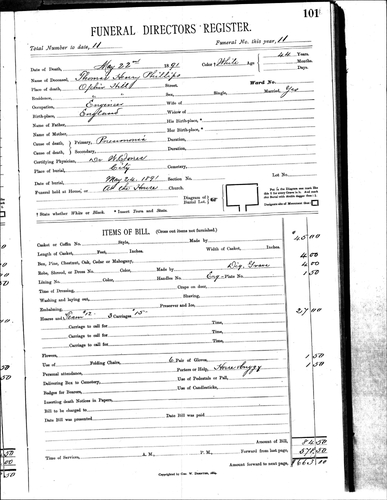 101
FUNERAL DIRECTORS REGISTER.
Total Number to date, 11 Funeral No. this year, 11
Date of Death, May 22nd 1891 Color † White Age 44 Years. Months. Days.
Name of Deceased, Thomas Henry Phillips
Place of death, Ophir Hill Street. Ward No.
Residence, " Sex, Single, Married, Yes
Occupation, Engineer Wife of
Birth-place, England Widow of
Name of Father, His Birth-place, *
Name of Mother, Her Birth-place, *
Cause of death, } Primary, Pneumonia Duration,
Cause of death, } Secondary, Duration,
Certifying Physician, Dr W. Jones
Place of burial, City Cemetery,
Date of burial, May 24 1891 Section No. Lot No.
Funeral held at House, or At the House Church.
Diagram of Burial Lot.
† State whether White or Black. * Insert Town and State.
Designate site of Monument thus
ITEMS OF BILL, (Cross out items not furnished.)
Casket or Coffin No. Style, Made by $ 45.00
Length of Casket, Feet, Inches. Width of Casket, Inches.
Box, Pine, Chestnut, Oak, Cedar or Mahogany, 4.00
Robe, Shroud, or Dress No. Color, Made by Dig. Grave 4.00
Lining No. Color, Handles No. Eng-Plate No. 1.50
Time of Dressing, Crape on door,
Washing and laying out, Shaving,
Embalming, Preserver and Ice,
Hearse and Team $12. 3 Carriages $15.- 27.00
Carriage to call for Time,
Carriage to call for Time,
Carriage to call for Time,
Carriage to call for Time,
Flowers,
Use of Folding Chairs, 6 Pair of Gloves, 1.50
Personal attendance, Porters or Help, Horse & buggy 1.50
Delivering Box to Cemetery, Use of Pedestals or Pall,
Badges for Bearers, Use of Candlesticks,
Inserting death Notices in Papers,
Bill to be charged to
Date Bill was presented Date Bill was paid
Amount of Bill, 84.50
Time of Services, A. M., P. M. Forward from last page, 578.50
Amount forward to next page, $663.00